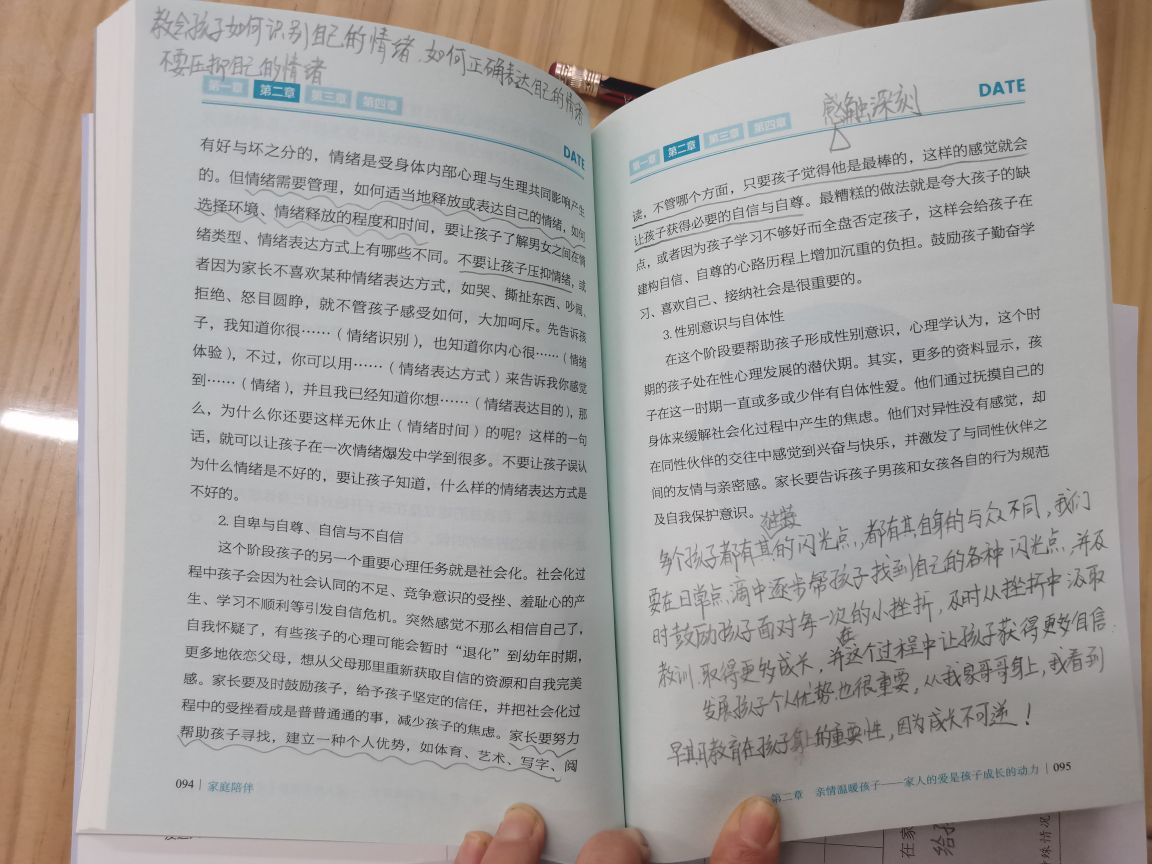 教会孩子如何识别自己的情绪、如何正确表达自己的情绪
不要压抑自己的情绪
第一章 第二章 第三章 第四章
DATE
有好与坏之分的，情绪是受身体内部心理与生理共同影响产生
的。但情绪需要管理，如何适当地释放或表达自己的情绪，如何
选择环境、情绪释放的程度和时间，要让孩子了解男女之间在情
绪类型、情绪表达方式上有哪些不同。不要让孩子压抑情绪，或
者因为家长不喜欢某种情绪表达方式，如哭、撕扯东西、吵闹、
拒绝、怒目圆睁，就不管孩子感受如何，大加呵斥。先告诉孩
子，我知道你很……（情绪识别），也知道你内心很……（情绪
体验），不过，你可以用……（情绪表达方式）来告诉我你感觉
到……（情绪），并且我已经知道你想……（情绪表达目的），那
么，为什么你还要这样无休止（情绪时间）的呢？这样的一句
话，就可以让孩子在一次情绪爆发中学到很多。不要让孩子误认
为什么情绪是不好的，要让孩子知道，什么样的情绪表达方式是
不好的。
2. 自卑与自尊、自信与不自信
这个阶段孩子的另一个重要心理任务就是社会化。社会化过
程中孩子会因为社会认同的不足、竞争意识的受挫、羞耻心的产
生、学习不顺利等引发自信危机。突然感觉不那么相信自己了，
自我怀疑了，有些孩子的心理可能会暂时“退化”到幼年时期，
更多地依恋父母，想从父母那里重新获取自信的资源和自我完美
感。家长要及时鼓励孩子，给予孩子坚定的信任，并把社会化过
程中的受挫看成是普普通通的事，减少孩子的焦虑。家长要努力
帮助孩子寻找，建立一种个人优势，如体育、艺术、写字、阅
094 | 家庭陪伴
感触深刻
DATE
第一章 第二章 第三章 第四章
读，不管哪个方面，只要孩子觉得他是最棒的，这样的感觉就会
让孩子获得必要的自信与自尊。最糟糕的做法就是夸大孩子的缺
点，或者因为孩子学习不够好而全盘否定孩子，这样会给孩子在
建构自信、自尊的心路历程上增加沉重的负担。鼓励孩子勤奋学
习、喜欢自己、接纳社会是很重要的。
3. 性别意识与自体性
在这个阶段要帮助孩子形成性别意识，心理学认为，这个时
期的孩子处在性心理发展的潜伏期。其实，更多的资料显示，孩
子在这一时期一直或多或少伴有自体性爱。他们通过抚摸自己的
身体来缓解社会化过程中产生的焦虑。他们对异性没有感觉，却
在同性伙伴的交往中感觉到兴奋与快乐，并激发了与同性伙伴之
间的友情与亲密感。家长要告诉孩子男孩和女孩各自的行为规范
及自我保护意识。
独特
每个孩子都有其的闪光点，都有其自身的与众不同，我们
要在日常点滴中逐步带孩子找到自己的各种闪光点，并及
时鼓励孩子面对每一次的小挫折，及时从挫折中汲取
教训，取得更多成长，并在这个过程中让孩子获得更多自信.
发展孩子个人优势也很重要，从我家哥哥身上，我看到
早期教育在孩子身上的重要性，因为成长不可逆！
第二章 亲情温暖孩子——家人的爱是孩子成长的动力 | 095
在家
给孩
殊情况